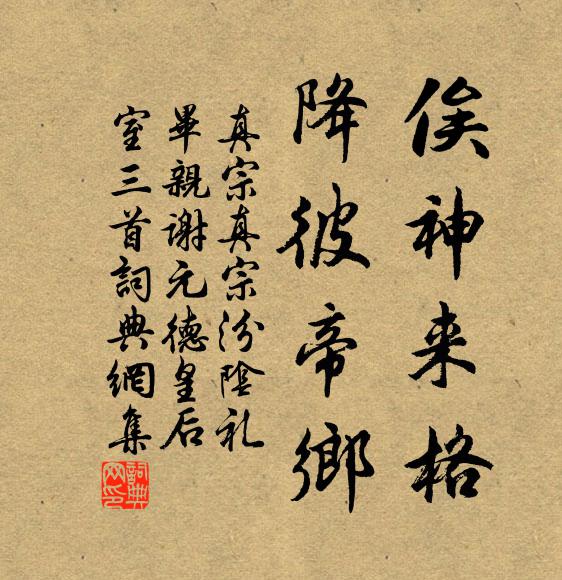 俟神来格
降彼帝鄉
真宗真宗汾陰礼
畢親謝元德皇后
室三首詞典網集
詞典网印